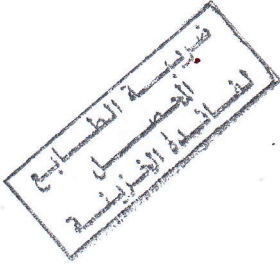 ضريبة الطابع
الفصل
لفائدة الخزينة